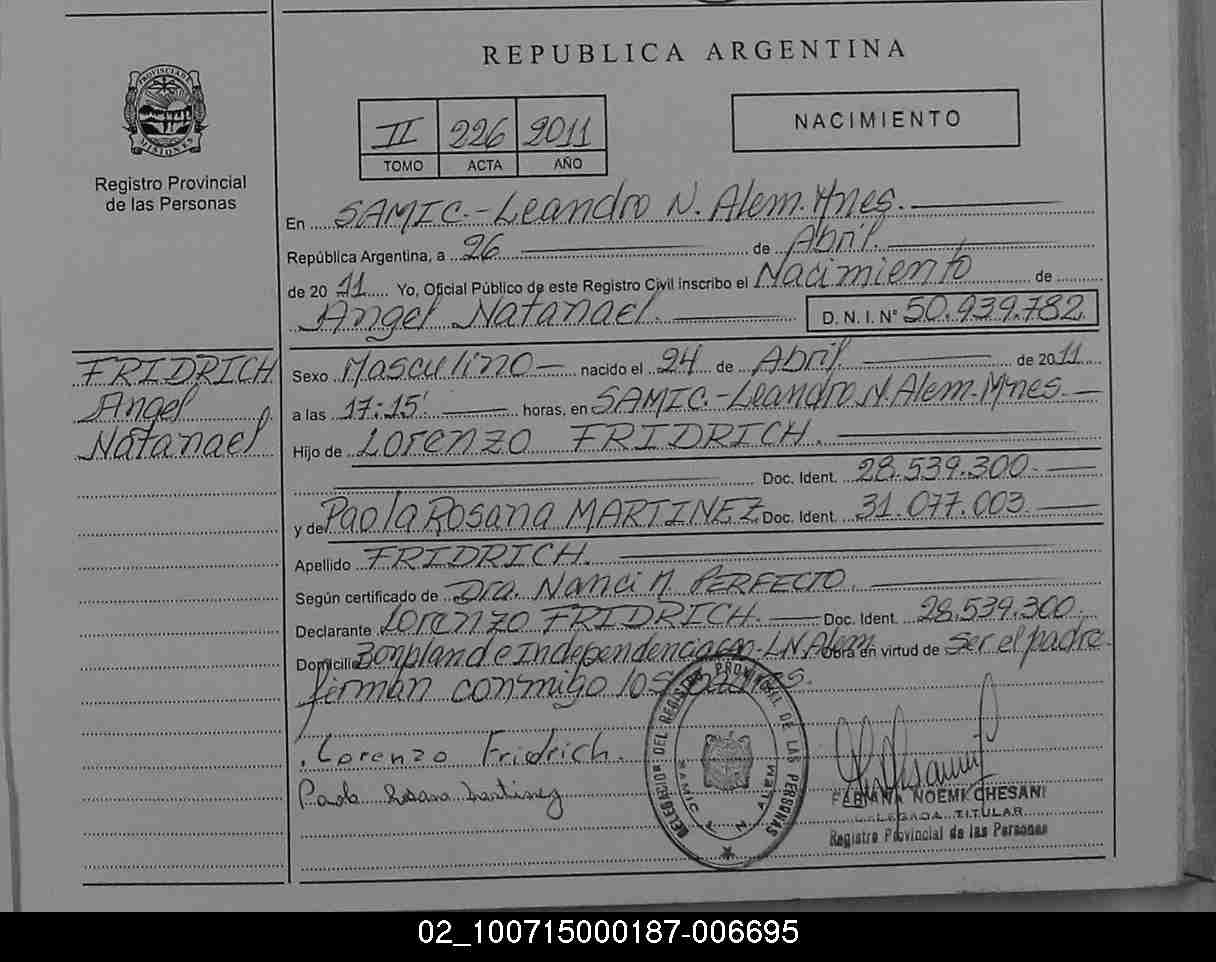 REPUBLICA ARGENTINA
PROVINCIA DE
MISIONES
Registro Provincial
de las Personas
II 226 2011
TOMO ACTA AÑO
NACIMIENTO
En SAMIC.-Leandro N. Alem. Mnes.
República Argentina, a 26 de Abril.
de 20 11 Yo, Oficial Público de este Registro Civil inscribo el Nacimiento de
Angel Natanael. D. N. I. N° 50.939.782
FRIDRICH
Angel
Natanael
Sexo Masculino nacido el 24 de Abril. de 2011
a las 17:15' horas, en SAMIC.-Leandro N. Alem.Mnes.
Hijo de Lorenzo FRIDRICH.
Doc. Ident. 28.539.300.
y de Paola Rosana MARTINEZ Doc. Ident. 31.077.003.
Apellido FRIDRICH.
Según certificado de Dra. Nanci M. PERFECTO.
Declarante Lorenzo FRIDRICH. Doc. Ident. 28.539.300.
Domicilio Bonpland e Independencia L.N.Alem Obra en virtud de ser el padre.
firman conmigo los padres.
Lorenzo Fridrich.
Paola Rosana Martinez
DELEGACION DEL REGISTRO PROVINCIAL DE LAS PERSONAS
SAMIC L. N. ALEM
FABIANA NOEMI CHESANI
DELEGADA TITULAR
Registro Provincial de las Personas
02_100715000187-006695